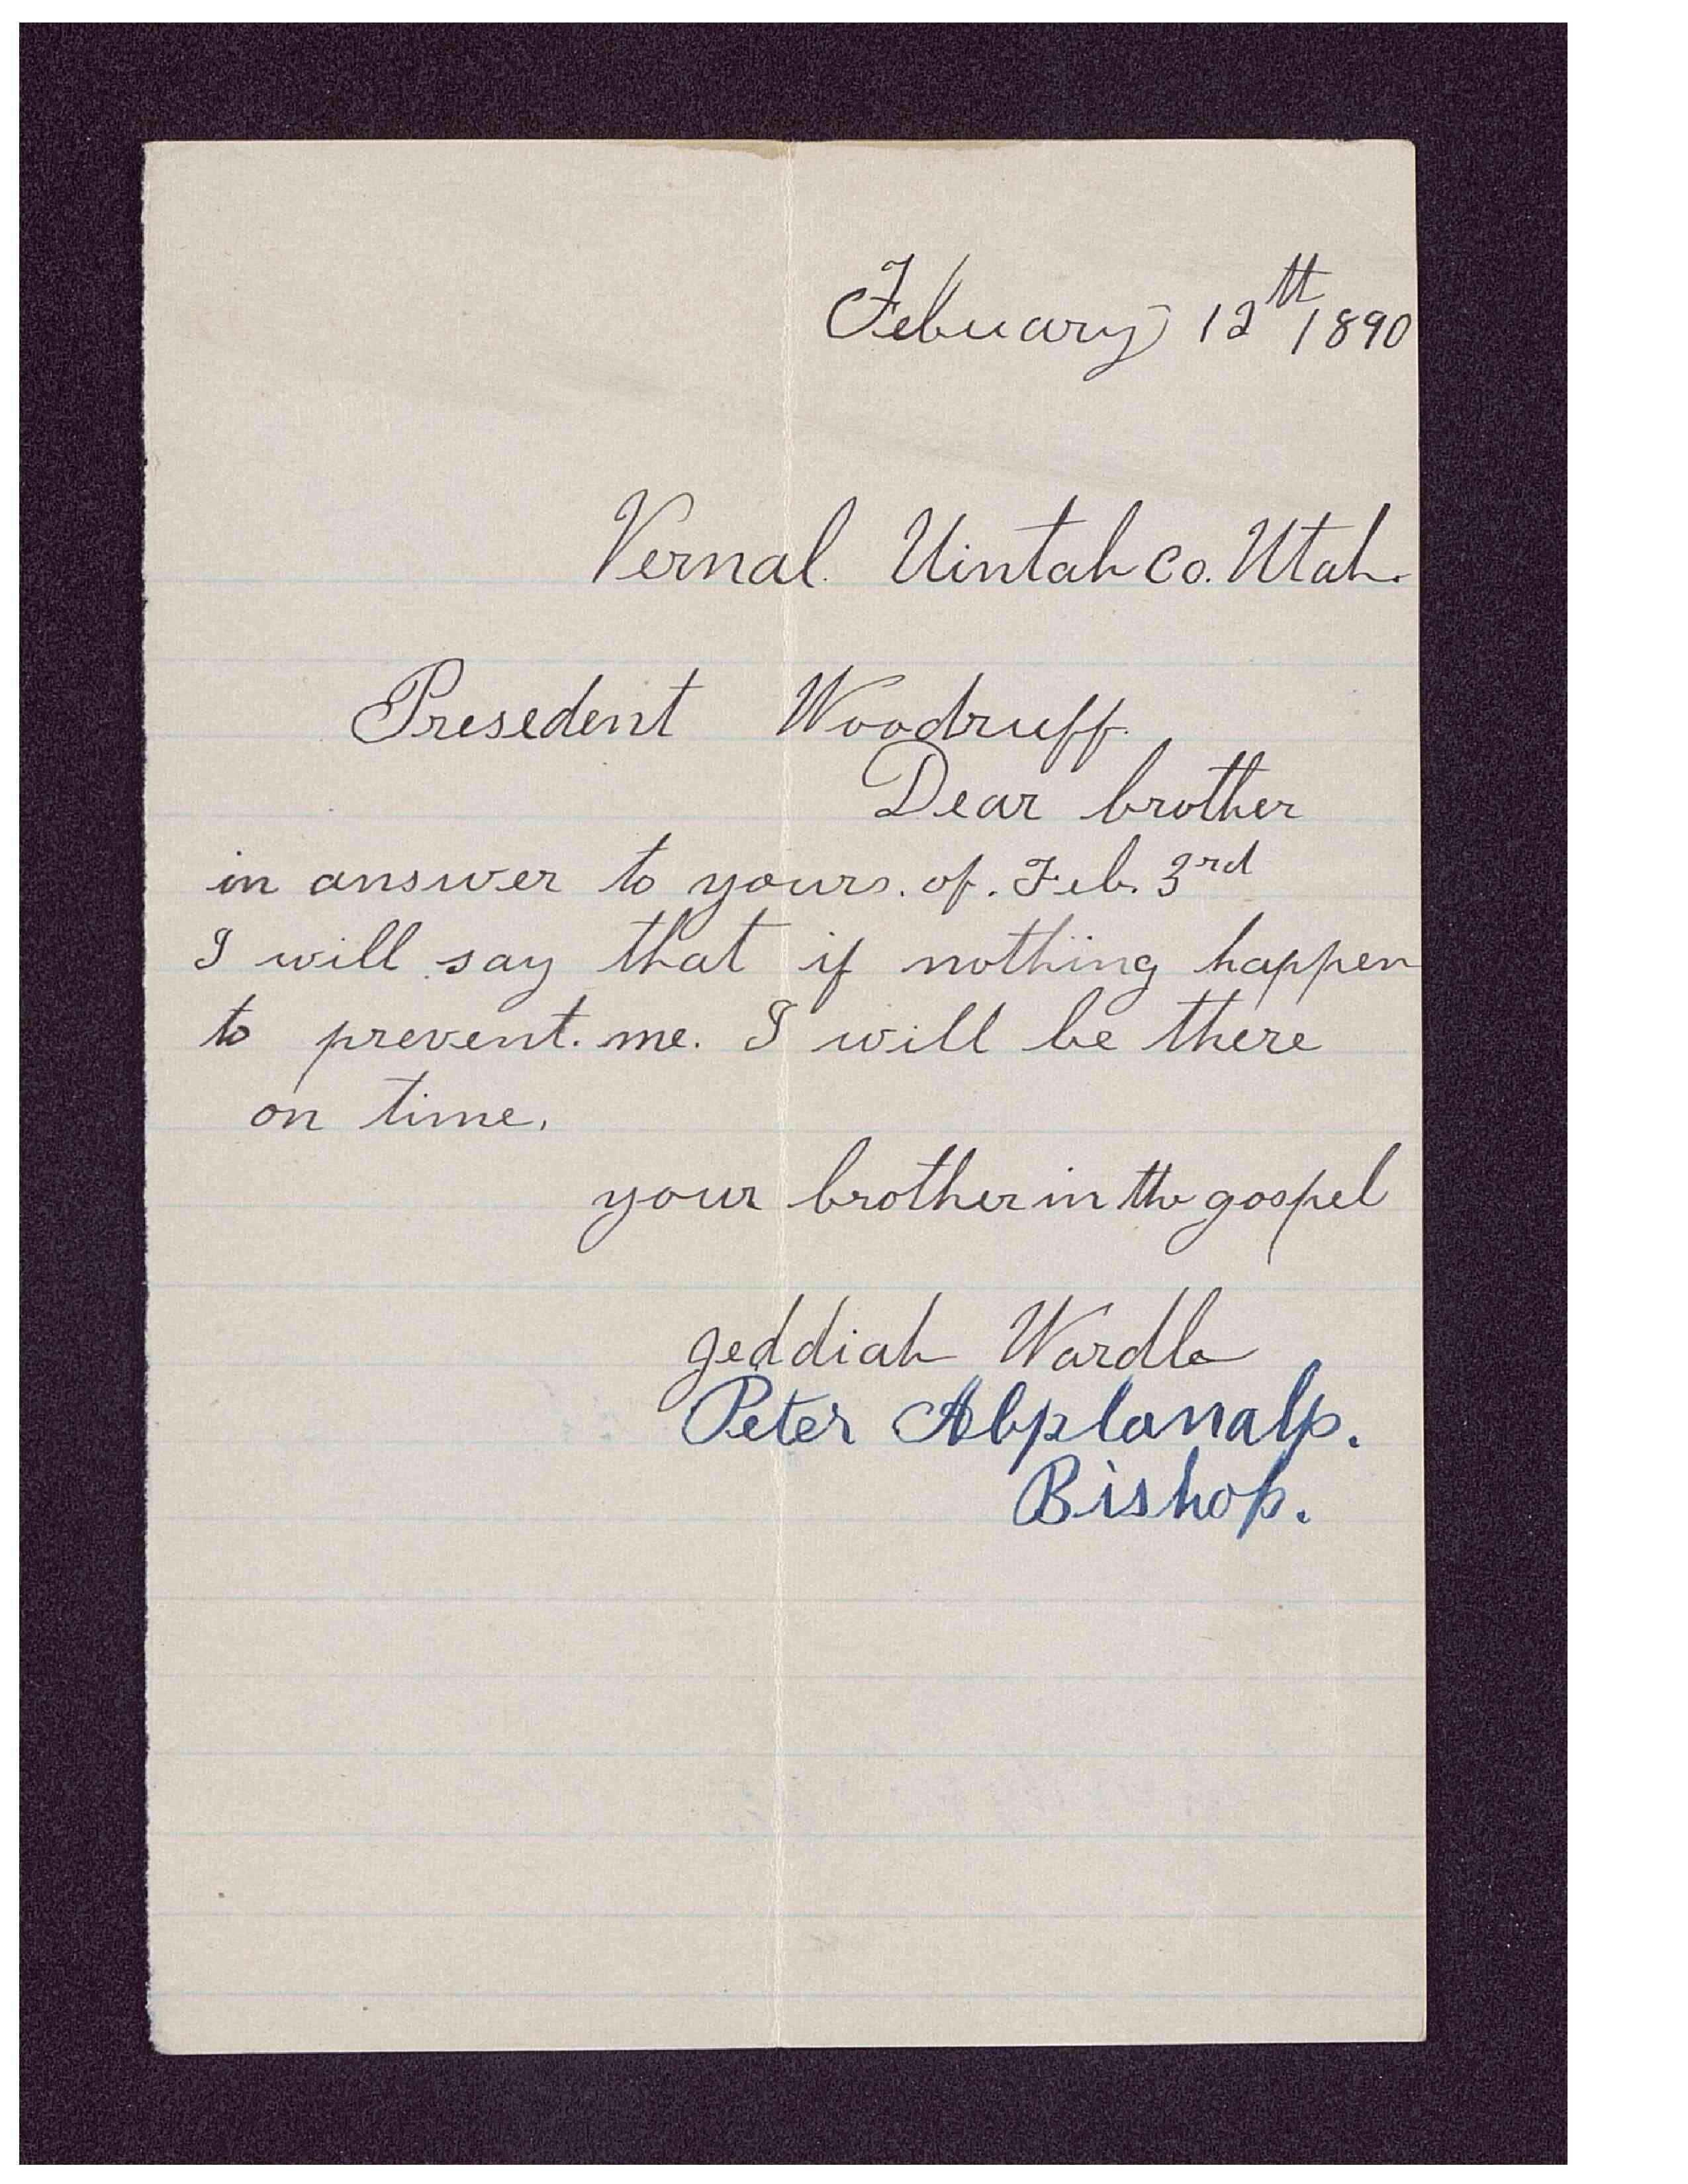 Febuary 12th 1890
Vernal. Uintah Co. Utah.
Presedent Woodruff.
Dear brother
in answer to yours. of. Feb. 3rd
I will say that if nothing happen
to prevent. me. I will be there
on time.
your brother in the gospel
Jeddiah Wardle
Peter Abplanalp.
Bishop.